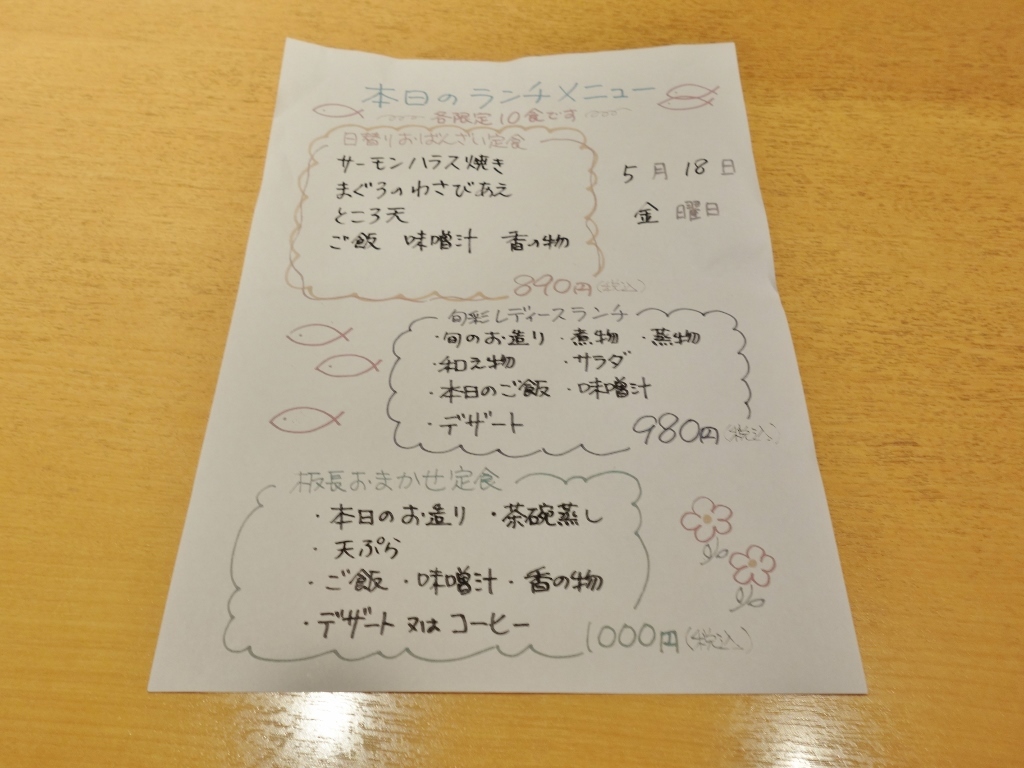 本日のランチメニュー
各限定10食です
日替りおばんざい定食
サーモンハラス焼き
まぐろのわさびあえ
ところ天
ご飯 味噌汁 香の物
890円(税込)
5月18日
金曜日
旬彩レディースランチ
・旬のお造り ・煮物 ・蒸物
・和え物 ・サラダ
・本日のご飯 ・味噌汁
・デザート
980円(税込)
板長おまかせ定食
・本日のお造り ・茶碗蒸し
・天ぷら
・ご飯 ・味噌汁 ・香の物
・デザート又はコーヒー
1000円(税込)